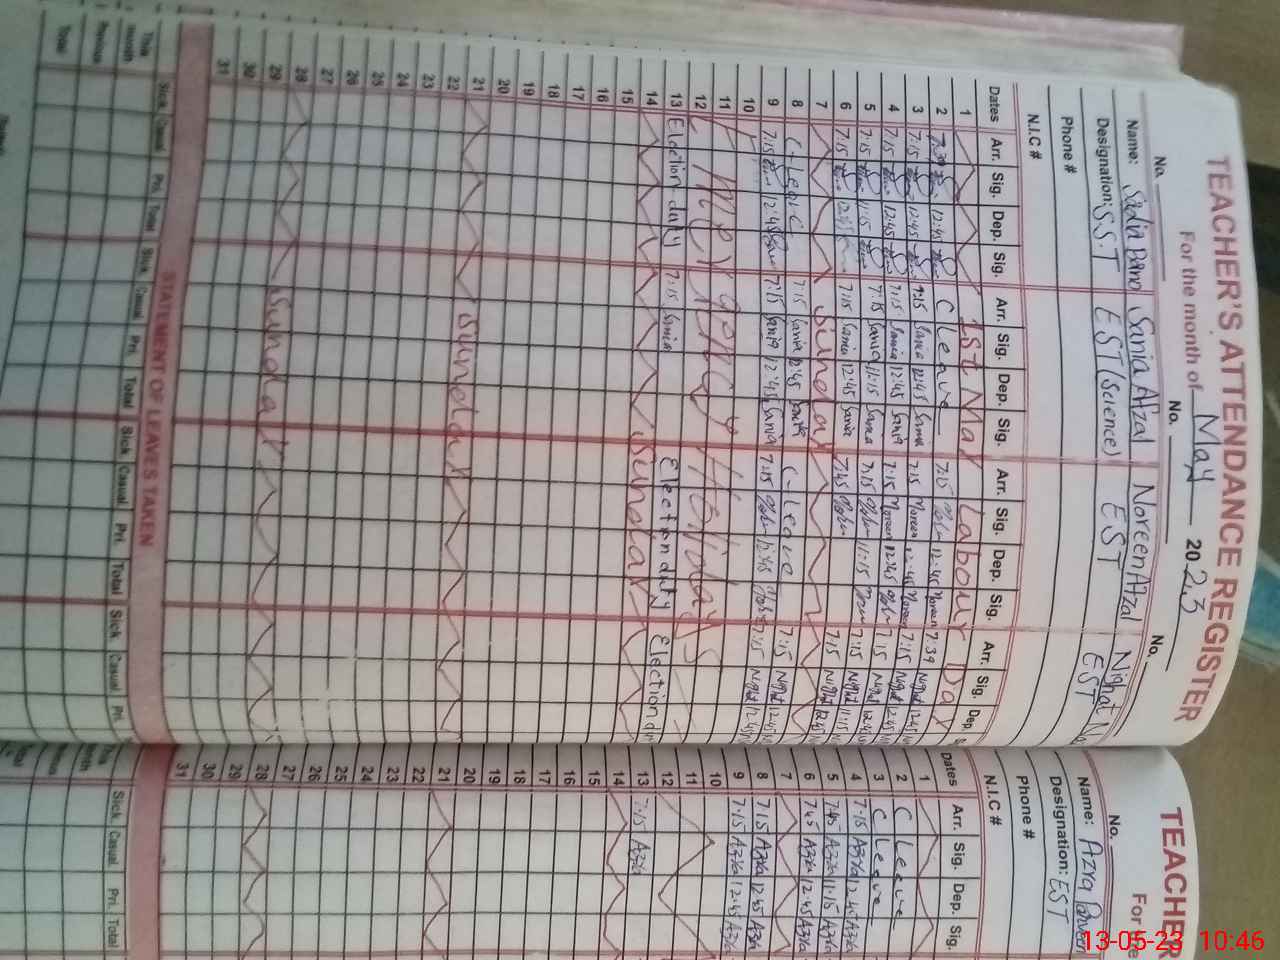 TEACHER'S ATTENDANCE REGISTER
For the month of May 2023
No. No. No.
Name: Sadia Bano Sania Afzal Noreen Afzal Nighat
Designation: S.S.T EST (science) EST EST
Phone #
N.I.C #
Dates Arr. Sig. Dep. Sig. Arr. Sig. Dep. Sig. Arr. Sig. Dep. Sig. Arr. Sig. Dep.
1 1st May Labour Day
2 7:30 12:45 C Leave 7:15 12:45 Noreen 7:39 Nighat 12:45
3 7:15 12:45 7:15 Sania 12:45 Sania 7:15 Noreen 12:45 Noreen 7:15 Nighat 12:45
4 7:15 12:45 7:15 Sania 12:45 Sania 7:15 Noreen 12:45 7:15 Nighat 12:45
5 7:15 11:15 7:15 Sania 11:15 Sania 7:15 11:15 7:15 Nighat 11:15
6 7:15 12:45 7:15 Sania 12:45 Sania 7:45 7:15 Nighat 12:45
7 Sunday
8 C-Leave 7:15 Sania 12:45 Sania C-Leave 7:15 Nighat 12:45
9 7:15 12:45 7:15 Sania 12:45 Sania 7:15 12:45 7:15 Nighat 12:45
10
11 Emergency Holidays
12
13 Election duty 7:15 Sania Election duty Election
14 Sunday
15
16
17
18
19
20
21 Sunday
22
23
24
25
26
27
28 Sunday
29
30
31
STATEMENT OF LEAVES TAKEN
Sick Casual Pri. Total Sick Casual Pri. Total Sick Casual Pri. Total Sick Casual Pri.
This month
Previous
Total
TEACHER
For the
No.
Name: Azra Parveen
Designation: EST
Phone #
N.I.C #
Dates Arr. Sig. Dep. Sig.
1
2 C Leave
3 C Leave
4 7:15 Azra 12:45 Azra
5 7:45 Azra 11:15 Azra
6 7:45 Azra 12:45 Azra
7
8 7:15 Azra 12:45 Azra
9 7:15 Azra 12:45 Azra
10
11
12
13 7:15 Azra
14
15
16
17
18
19
20
21
22
23
24
25
26
27
28
29
30
31
Sick Casual Pri. Total
This month
13-05-23 10:46